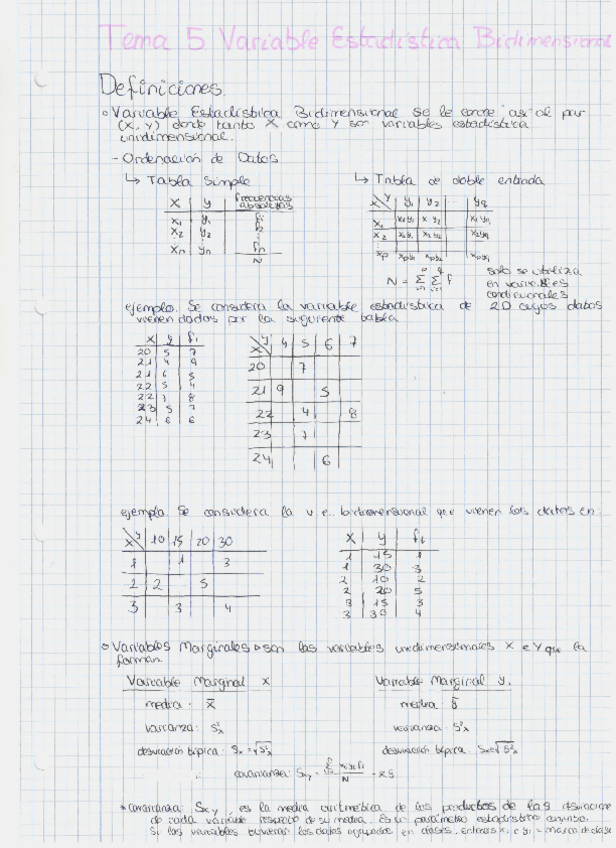 Tema 5 Variable Estadística Bidimensional
Definiciones.
Variable Estadística Bidimensional se le conoce así al par
(X, Y) donde tanto X como Y son variables estadística
unidimensional.
- Ordenación de Datos
↳ Tabla Simple
x y frecuencias absolutas
x1 y1 f1
x2 y2 f2
xn yn fn
N
↳ Tabla de doble entrada
x y y1 y2 ... yq
x1 x1y1 x1yq
x2 x2yq
xp xpy1 xpyq
N = ΣΣ f
solo se utiliza
en variables
condicionales
ejemplo. Se considera la variable estadística de 2D cuyos datos
vienen dados por la siguiente tabla
x y fi
20 5 7
21 4 9
21 6 5
22 5 4
22 7 8
23 5 7
24 6 6
x y 4 5 6 7
20 7
21 9 5
22 4 8
23 7
24 6
ejemplo. Se considera la v.e. bidimensional que vienen los datos en
x y 10 15 20 30
1 1 3
2 2 5
3 3 4
x y fi
1 15 1
1 30 3
2 10 2
2 20 5
3 15 3
3 30 4
Variables Marginales son las variables unidimensionales X e Y que la
forman.
Variable Marginal x
media: x̄
varianza: S²x
desviación típica: Sx=√S²x
Variable Marginal y.
media ȳ
varianza: S²x
desviación típica: Sx=√S²x
covarianza: Sxy = Σ xi yi fi / N - x̄ȳ
* covarianza: Sxy, es la media aritmética de los productos de las desviacione
de cada variable respecto de su media. Es un parámetro estadístico conjunto.
Si las variables tuvieran los datos agrupados en clases, entonces xi e yi = marca de clase